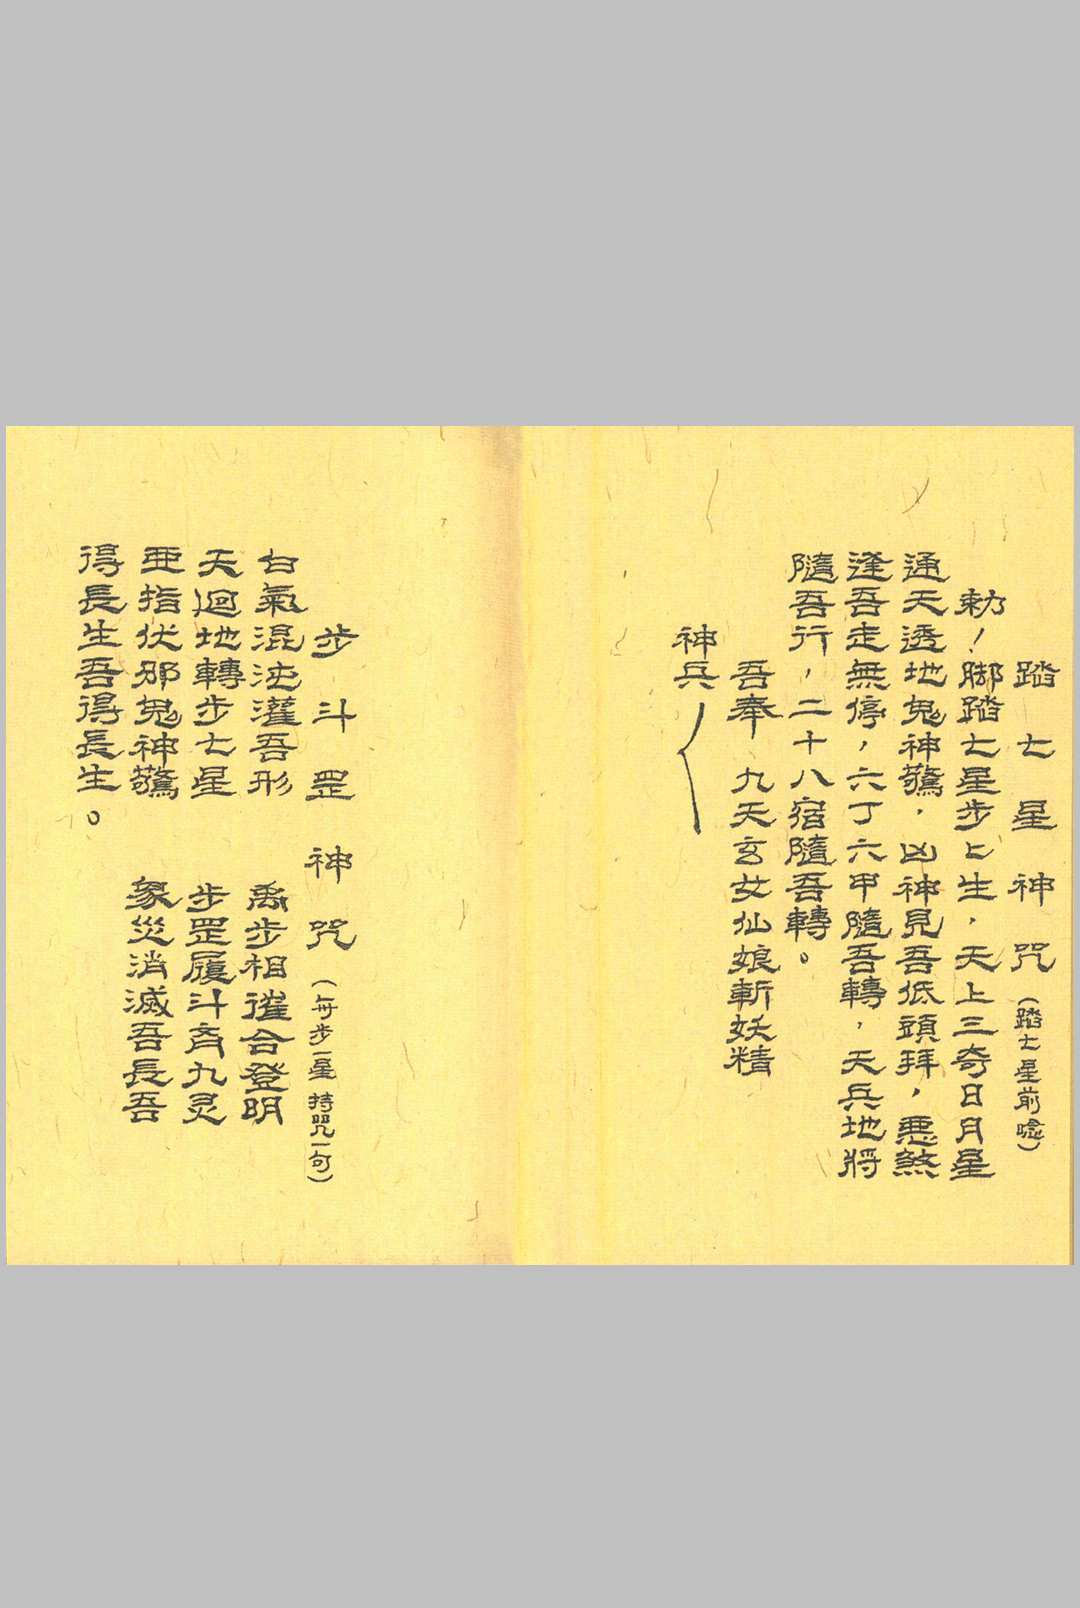 踏七星神咒（踏七星前唸）
勅！脚踏七星步上生，天上三奇日月星
通天透地鬼神驚，凶神見吾低頭拜，悪煞
逢吾走無停，六丁六甲隨吾轉，天兵地將
隨吾行，二十八宿隨吾轉。
吾奉 九天玄女仙娘斬妖精
神兵
步斗罡神咒（每步一星 持咒一句）
白氣混沌灌吾形 禹步相催合登明
天迴地轉步七星 步罡履斗齊九灵
亜指伏邪鬼神驚 象災消滅吾長吾
得長生吾得長生。